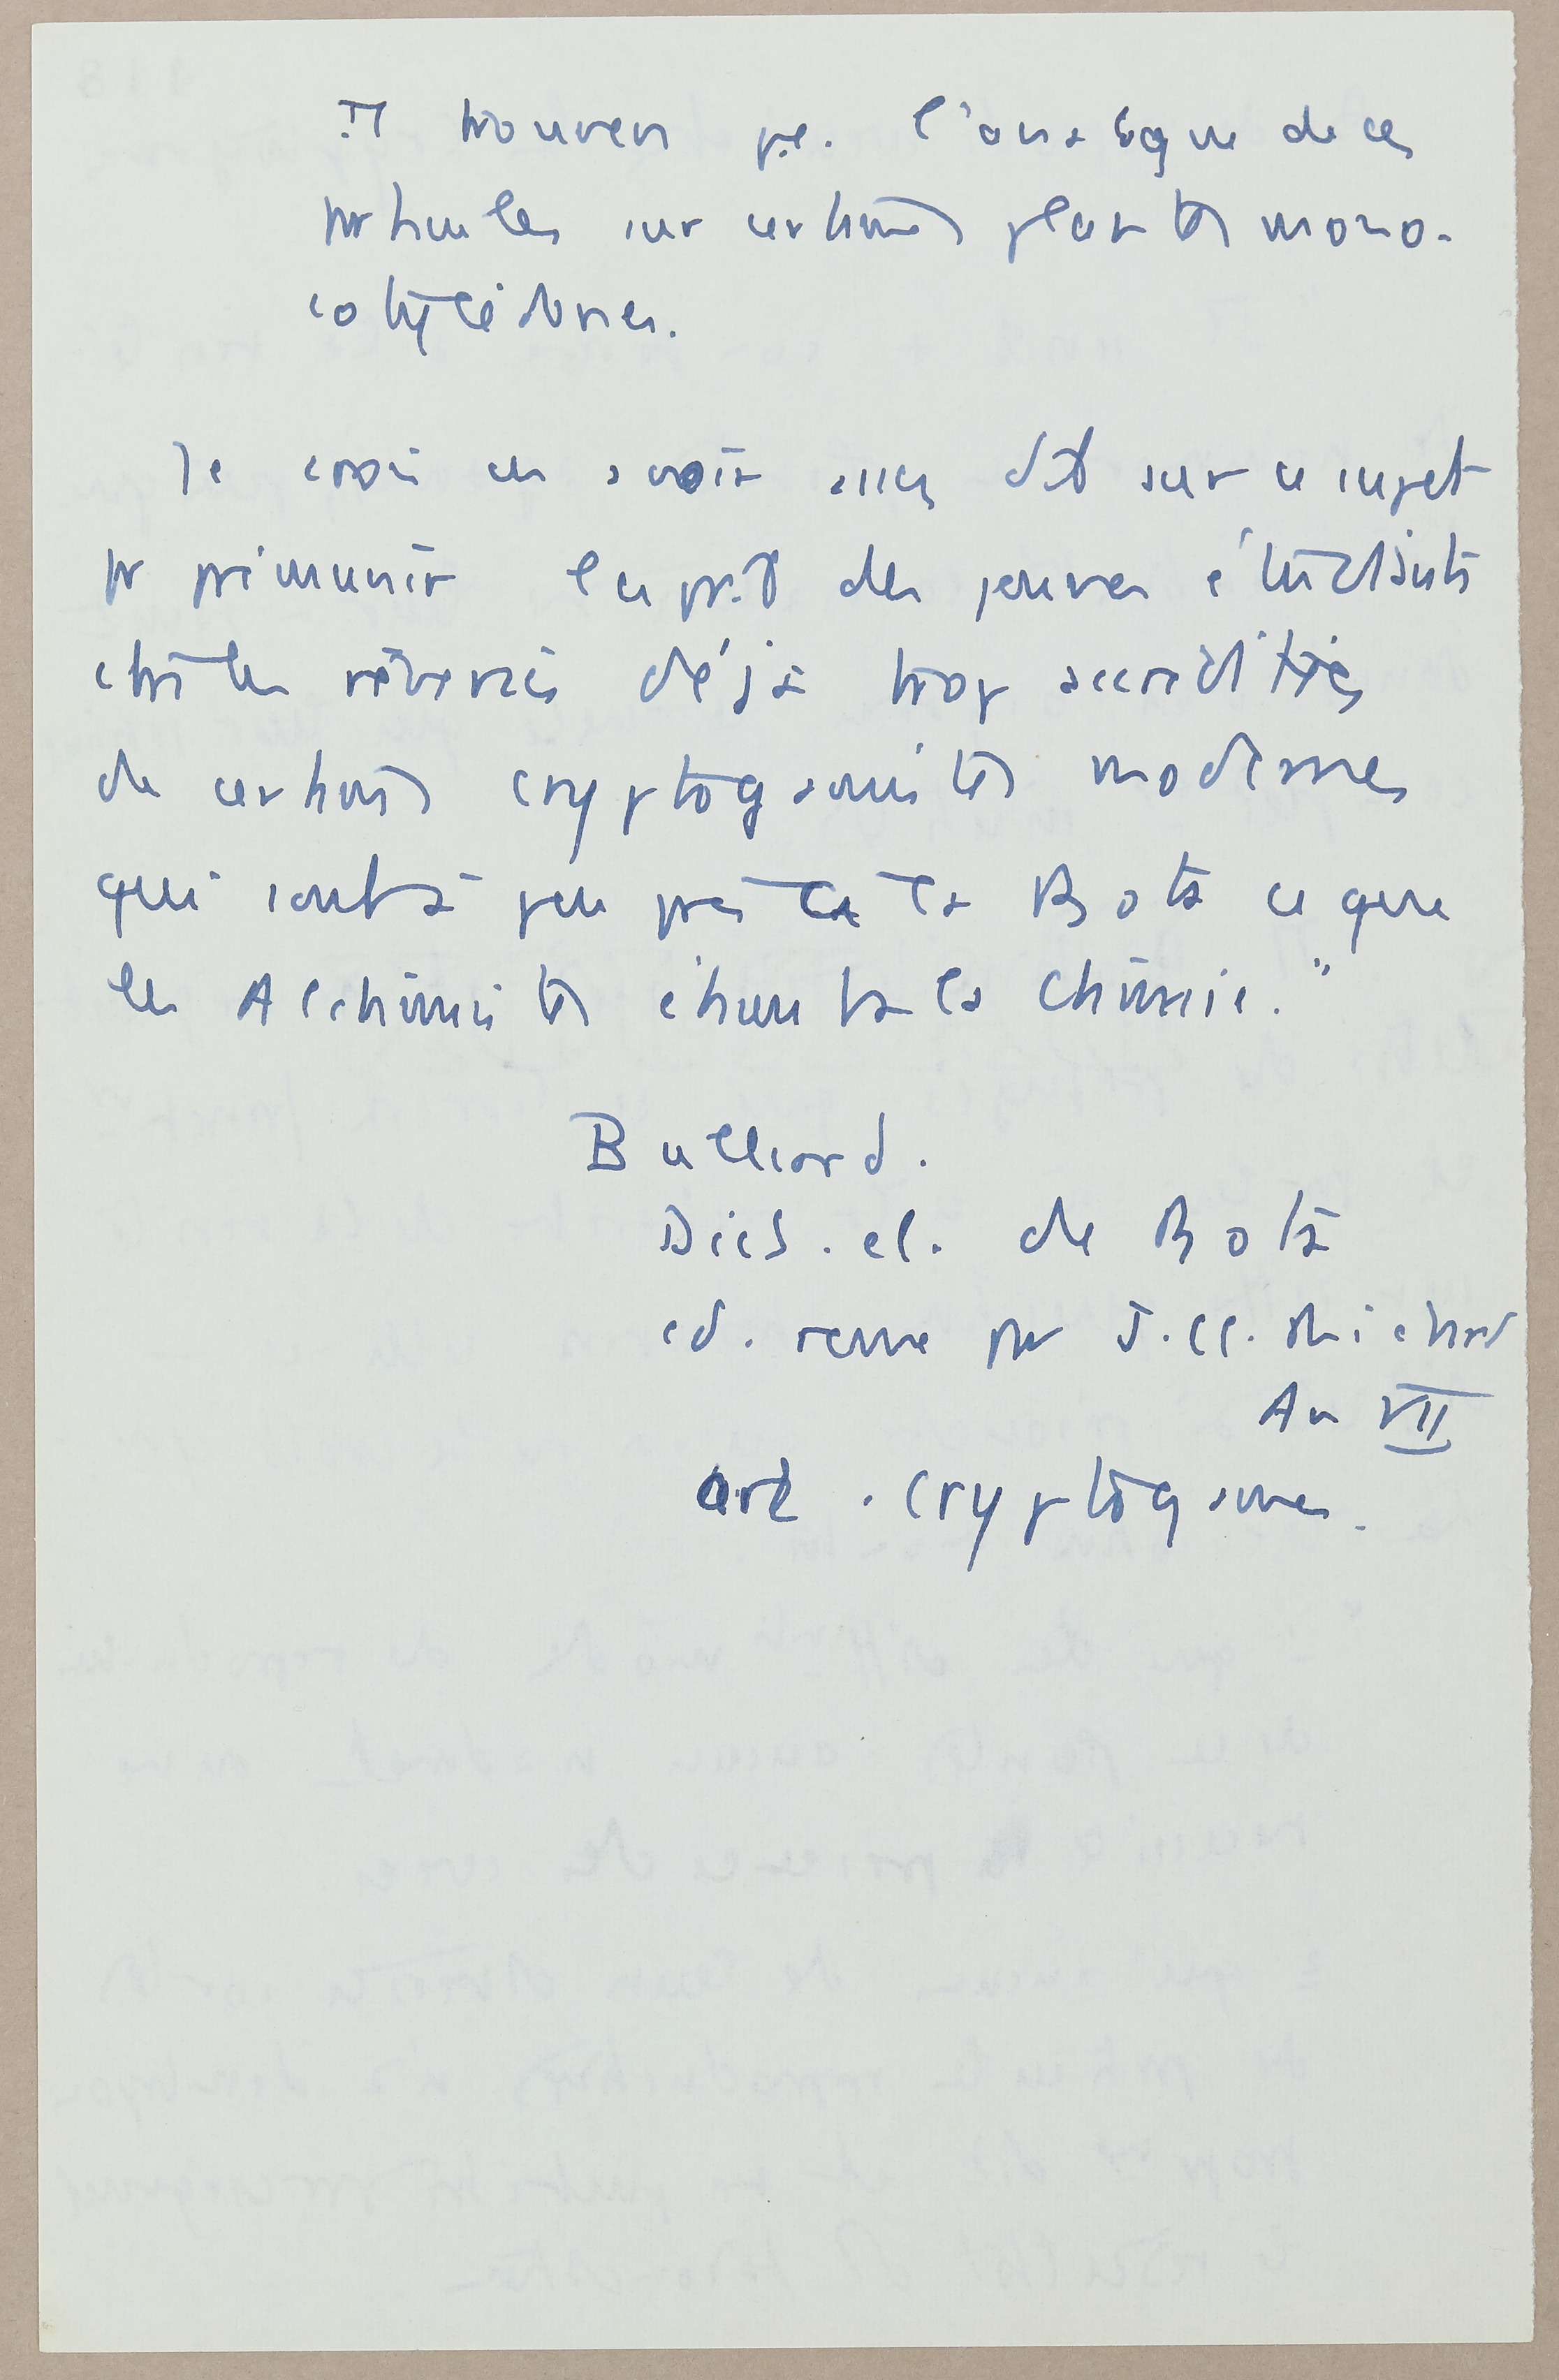 Ils trouvent p.e. l'analogue de ces
particules sur certaines plantes mono-
cotylédones.
Je crois en avoir assez dit sur ce sujet
pr prémunir l'esprit des jeunes étudiants
ctre les rêveries déjà trop accréditées
de certains cryptogamistes modernes
qui sont à peu près à la Bota ce que
les Alchimistes étaient à la Chimie."
Bulliard.
Dict. el. de Bota
ed. revue par L. Cl. Richard
An VII
art. Cryptogames.